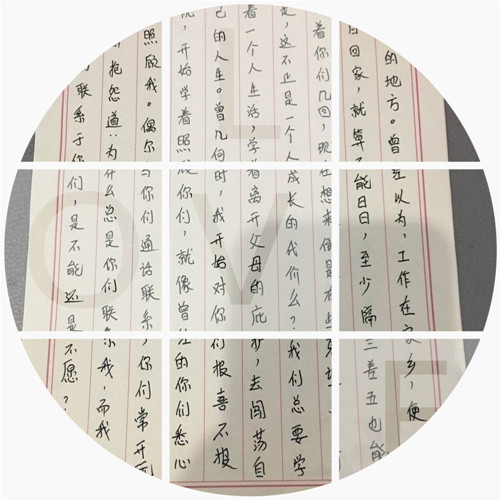 的地方。曾经以为，工作在家乡，便
日回家，就算不能日日，至少隔三差五也能
着你们几回，现在想来倒是有些
，这不正是一个人成长的代价么？我们总要学
着一个人生活，学着离开父母的庇护，去闯荡自
己的人生。曾几何时，我开始对你们报喜不报
忧，开始学着照顾你们，就像曾经的你们悉心
照顾我。偶尔与你们通话联系，你们常开玩
抱怨道：为什么总是你们联系我，而我
联系于你们，是不能还是不愿？
L
O V
E